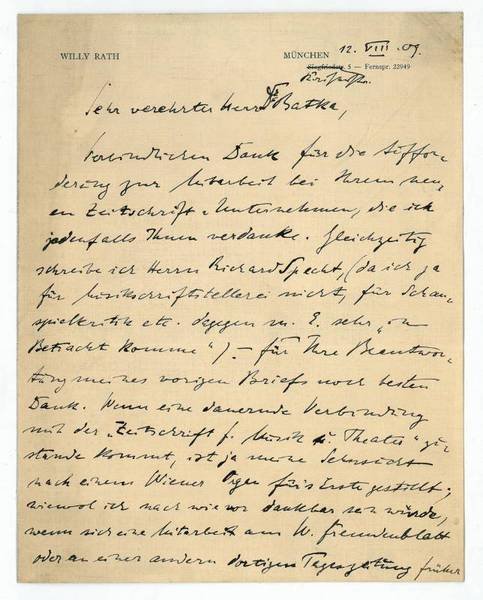 WILLY RATH
MÜNCHEN 12. VIII. 09.
Siegfriedstr. 5 — Fernspr. 22949
Sehr verehrter Herr Dr. Batka,
verbindlichen Dank für die Auffor-
derung zur Mitarbeit bei Ihrem neu-
en Zeitschrift-Unternehmen, die ich
jedenfalls Ihnen verdanke. Gleichzeitig
schreibe ich Herrn Richard Specht, (da ich ja
für Musikschriftstellerei nicht, für Schau-
spielkritik etc. dagegen m. E. sehr „in
Betracht komme“). – Für Ihre Beantwor-
tung meines vorigen Briefs noch besten
Dank. Wenn eine dauernde Verbindung
mit der „Zeitschrift f. Musik u. Theater“ zu-
stande kommt, ist ja meine Sehnsucht
nach einem Wiener Organ fürs Erste gestillt;
wiewol ich nach wie vor dankbar sein würde,
wenn sich eine Mitarbeit am W. Fremdenblatt
oder an einer andern dortigen Tageszeitung früher